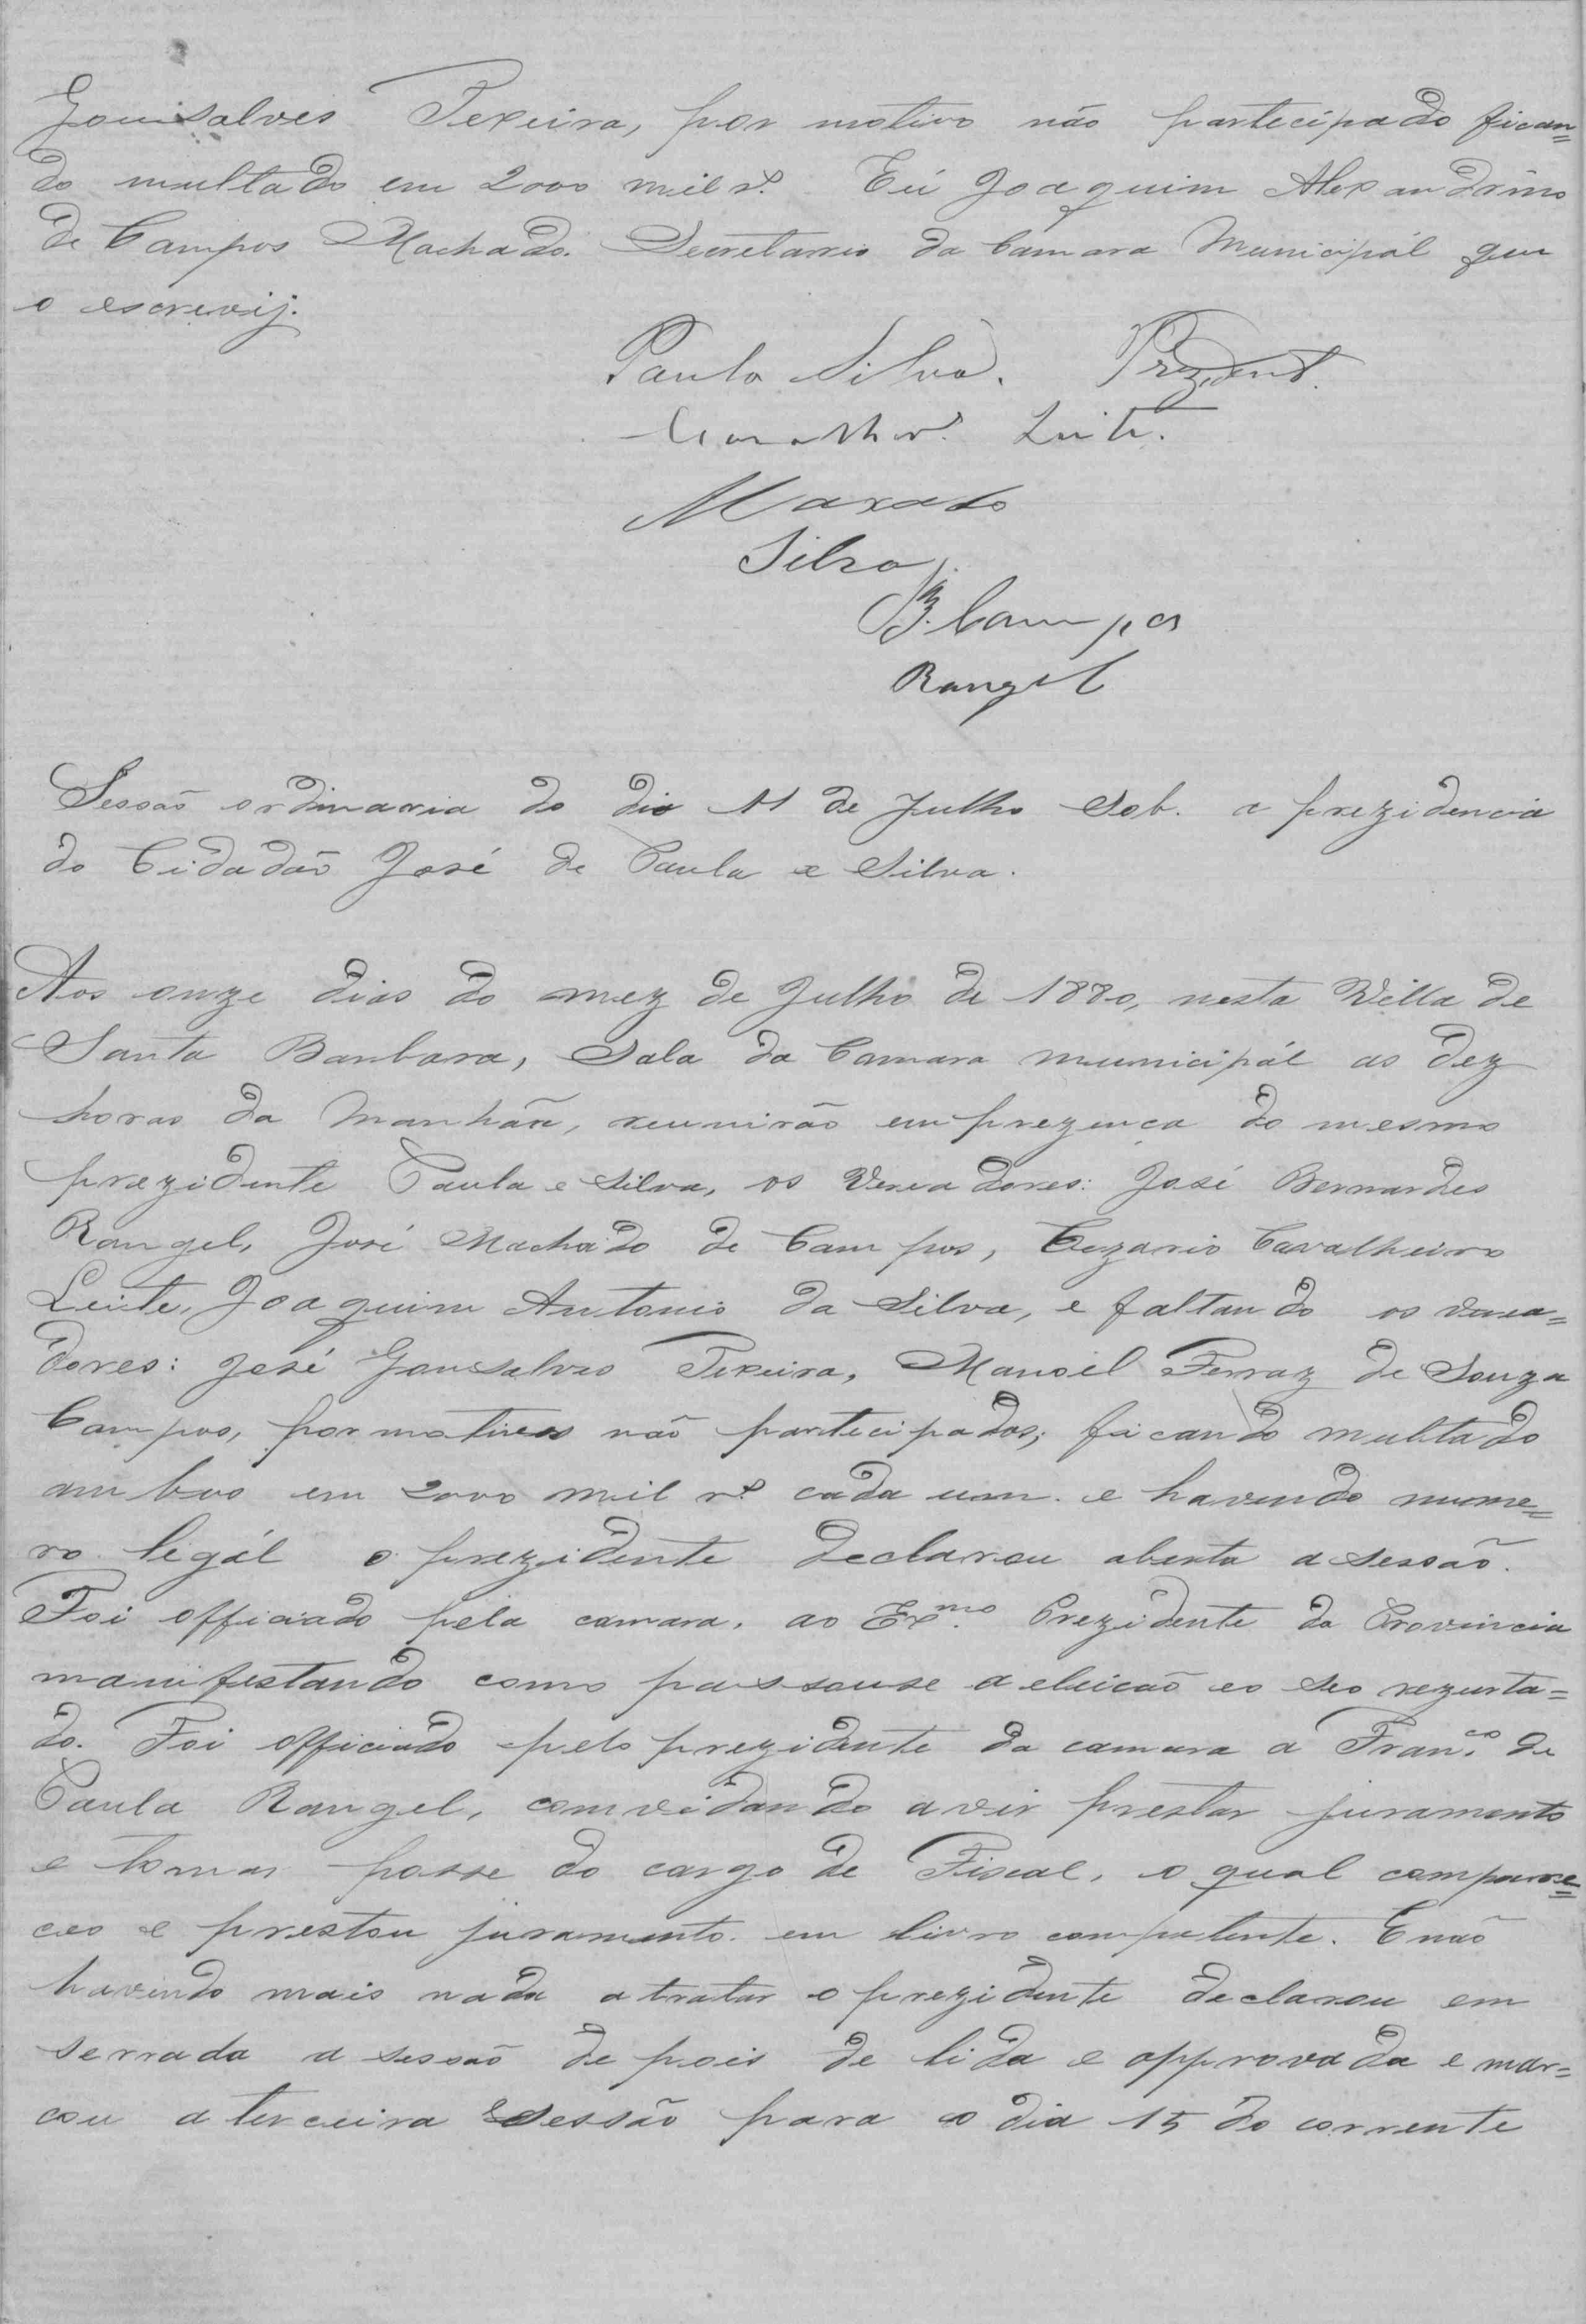 Gonsalves Texeira, por motivo não partecipado fican=
do multado em 2000 mil rs. Eú Joaquim Alexandrino
de Campos Machado. Secretario da Camara Municipál que
o escrevij.
Paula Silva. Prezident.
Leite.
Maxado
Silva
B. Campos
Rangel
Sessaõ ordinaria do dia 11 de Julho sob. a prezidencia
do Cidadaõ José de Paula e Silva.
Aos onze dias do mez de Julho de 1880, nesta Villa de
Santa Barbara, Sala da Camara municipál as dez
horas da manhãa, reunirão em prezenca do mesmo
prezidente Paula e Silva, os Vereadores: José Bernardes
Rangel, José Machado de Campos, Cezario Cavalheiro
Leite, Joaquim Antonio da Silva, e faltando os verea=
dores: José Gonsalves Texeira, Manoél Ferraz de Souza
Campos, por motivos naõ partecipados; ficando multado
ambos em 2000 mil rs. cada um. e havendo nume=
ro legál o prezidente declarou aberta a sessaõ.
Foi officiado pela camara, ao Exmo. Prezidente da Provincia
manifestando como passouse a eleicaõ eo seo rezurta=
do. Foi officiado pelo prezidente da camara a Franco. de
Paula Rangel, comvidando avir prestar juramento
e tomar posse do cargo de Fiscal, o qual compare=
ceo e prestou juramento em livro competente. E naõ
havendo mais nada a tratar o prezidente declarou em
serrada a sessaõ de pois de lida e approvada e mar=
cou a terceira sessão para o dia 15 do corrente